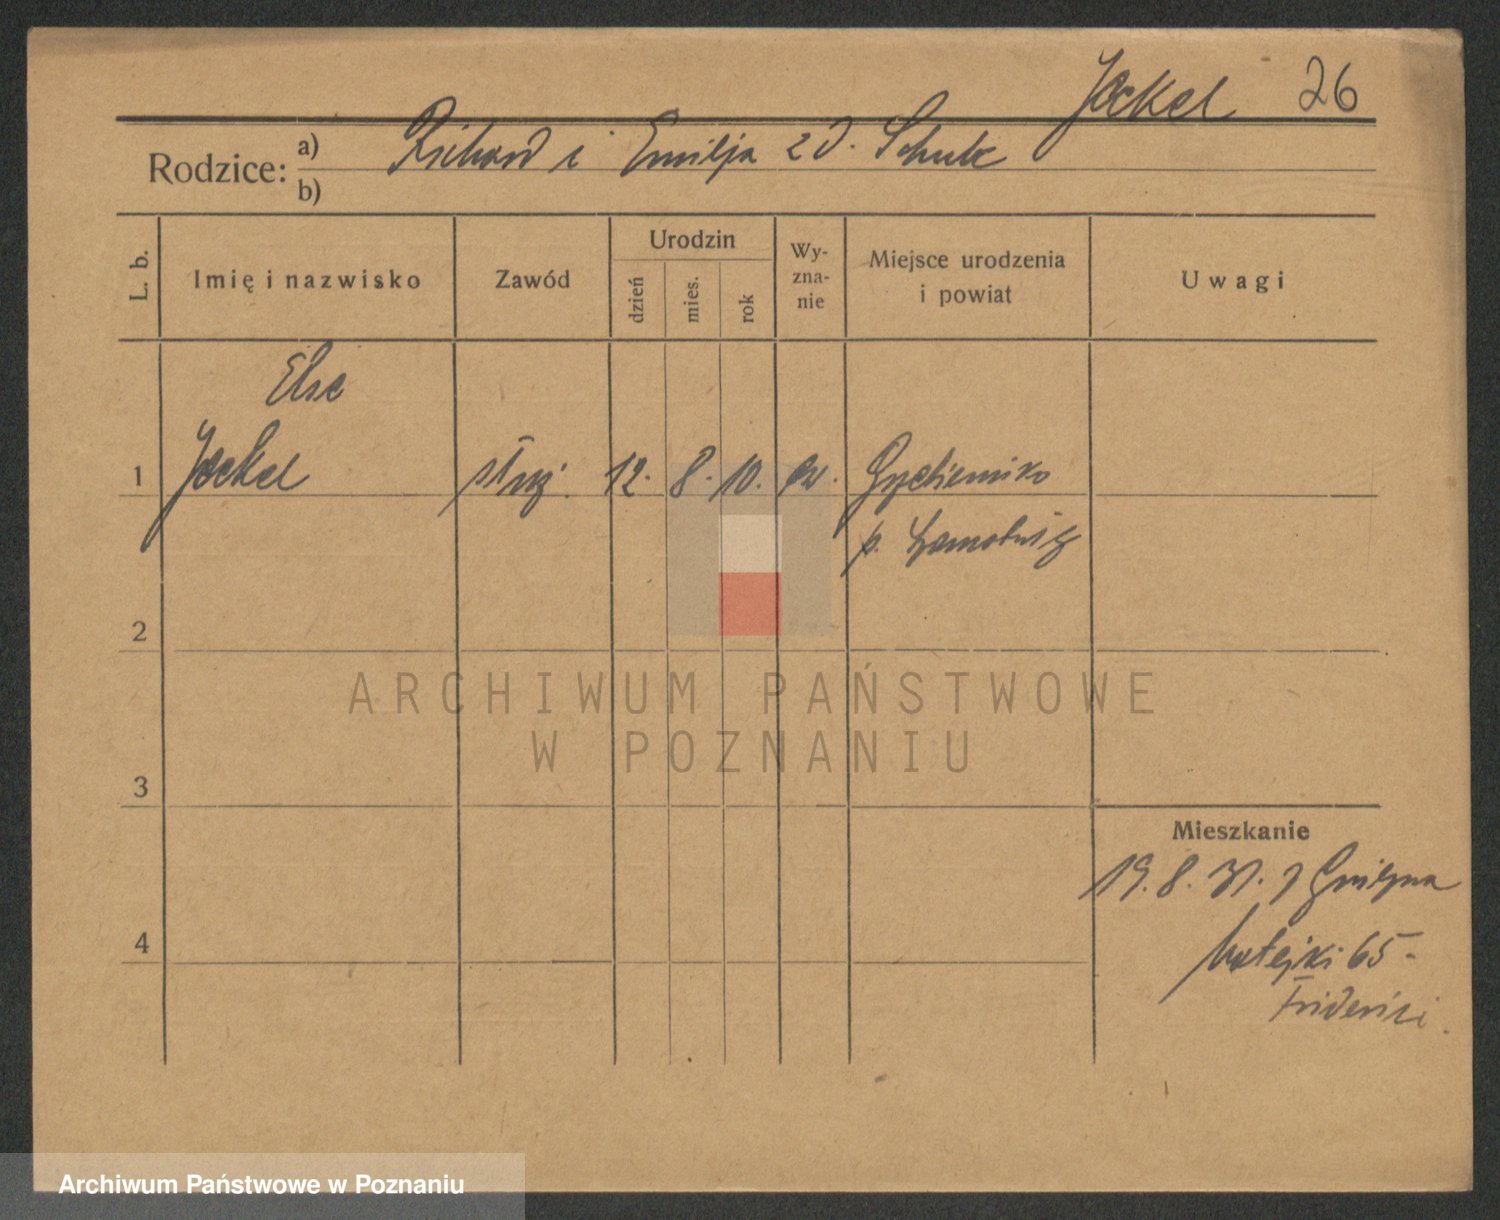 Jeckel 26
Rodzice: a) Richard i Emilja z d. Schulz
b)
L. b.
Imię i nazwisko
Zawód
Urodzin
dzień
mies.
rok
Wy-
zna-
nie
Miejsce urodzenia
i powiat
Uwagi
Else
1 Jeckel służ. 12. 8. 10. ew.
p.
2
ARCHIWUM PAŃSTWOWE
W POZNANIU
3
Mieszkanie
19. 8. 31. z
4
Matejki 65
Friderici
Archiwum Państwowe w Poznaniu